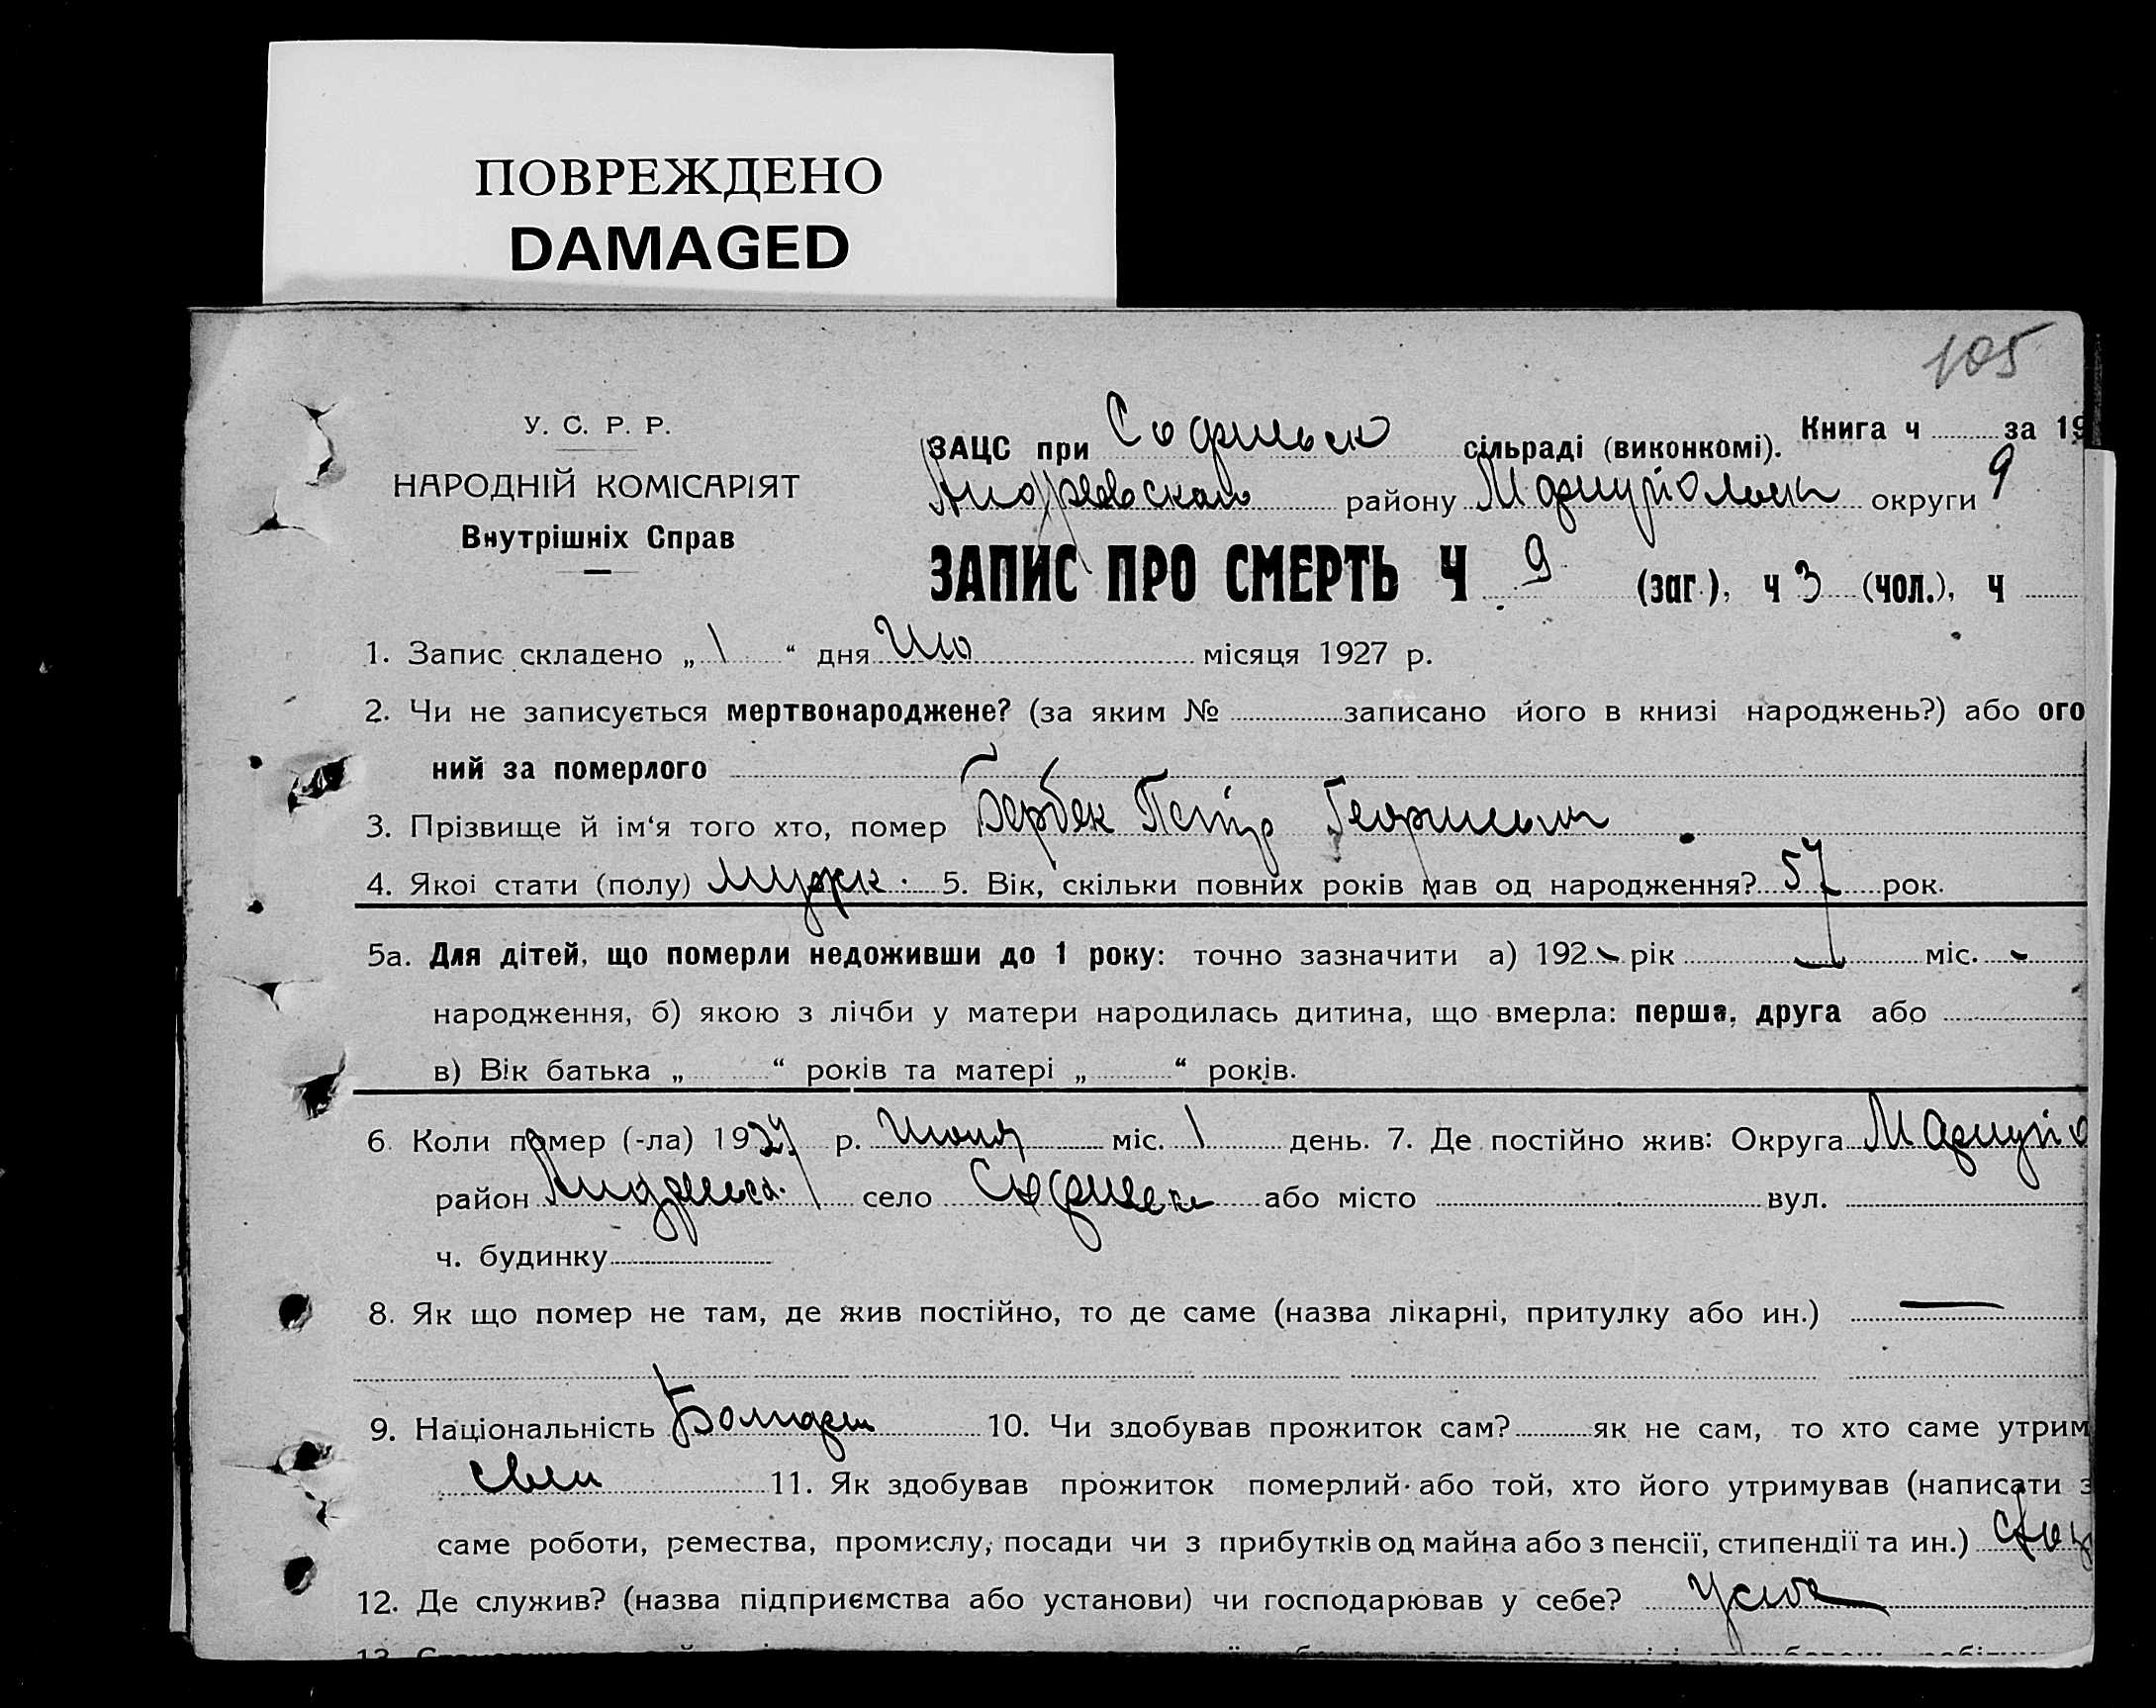 ПОВРЕЖДЕНО
DAMAGED
105
У. С. Р. Р.
НАРОДНІЙ КОМІСАРІЯТ
Внутрішніх Справ
Книга ч за 19
ЗАЦС при сільраді (виконкомі).
району округи 9
ЗАПИС ПРО СМЕРТЬ Ч 9 (заг.), ч 3 (чол.), ч
1. Запис складено „ 1 “ дня місяця 1927 р.
2. Чи не записується мертвонароджене? (за яким № записано його в книзі народжень?) або ого
ний за померлого
3. Прізвище й ім‘я того хто, помер Бербек Петр
4. Якої стати (полу) мужск. 5. Вік, скільки повних років мав од народження? 57 рок.
5а. Для дітей, що померли недоживши до 1 року: точно зазначити а) 192 рік міс.
народження, б) якою з лічби у матери народилась дитина, що вмерла: перша, друга або
в) Вік батька „ “ років та матері „ “ років.
6. Коли помер (-ла) 1927 р. Июня міс. 1 день. 7. Де постійно жив: Округа Мариупо
район село або місто вул.
ч. будинку
8. Як що помер не там, де жив постійно, то де саме (назва лікарні, притулку або ин.) —
9. Національність 10. Чи здобував прожиток сам? як не сам, то хто саме утрим
11. Як здобував прожиток померлий або той, хто його утримував (написати з
саме роботи, ремества, промислу, посади чи з прибутків од майна або з пенсії, стипендії та ин.)
12. Де служив? (назва підприємства або установи) чи господарював у себе?